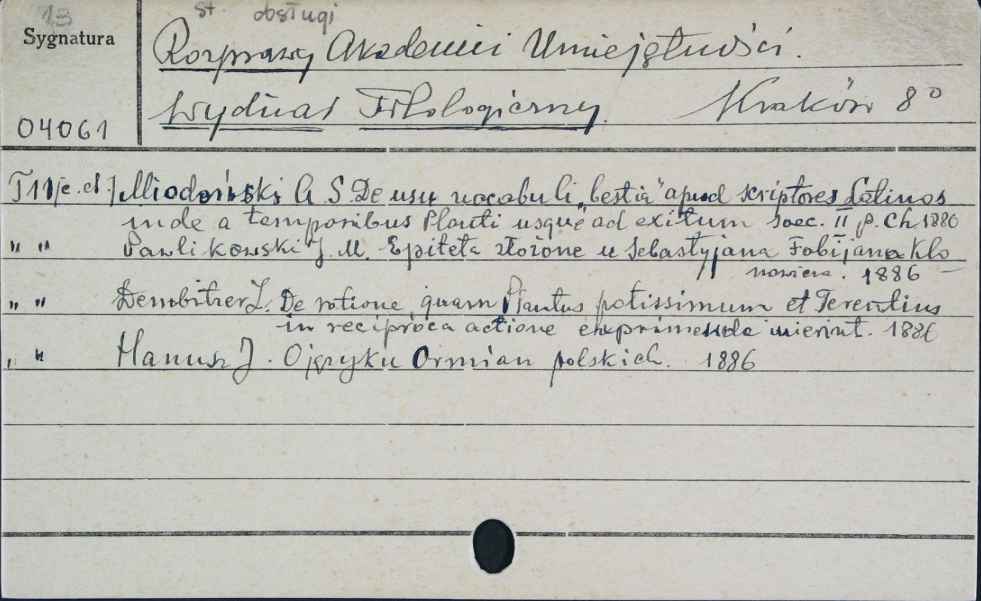 13 St. obsługi
Sygnatura
Rozprawy Akademii Umiejętności.
Wydział Filologiczny. Kraków 8°
04061
T 11 Miodoński A. S. De usu vocabuli „bestia" apud scriptores Latinos
inde a temporibus Plauti usque ad exitum saec. II p. Ch 1886
" " Pawlikowski J. M. - Epiteta złożone u Sebastyjana Fabijana Klo
nowicza. 1886 -
" " Dembitzer Z. De ratione quam Plautus potissimum et Terentius
in reciproca actione exprimenda inierint. 1886
" " Hanusz J. O języku Ormian polskich. 1886